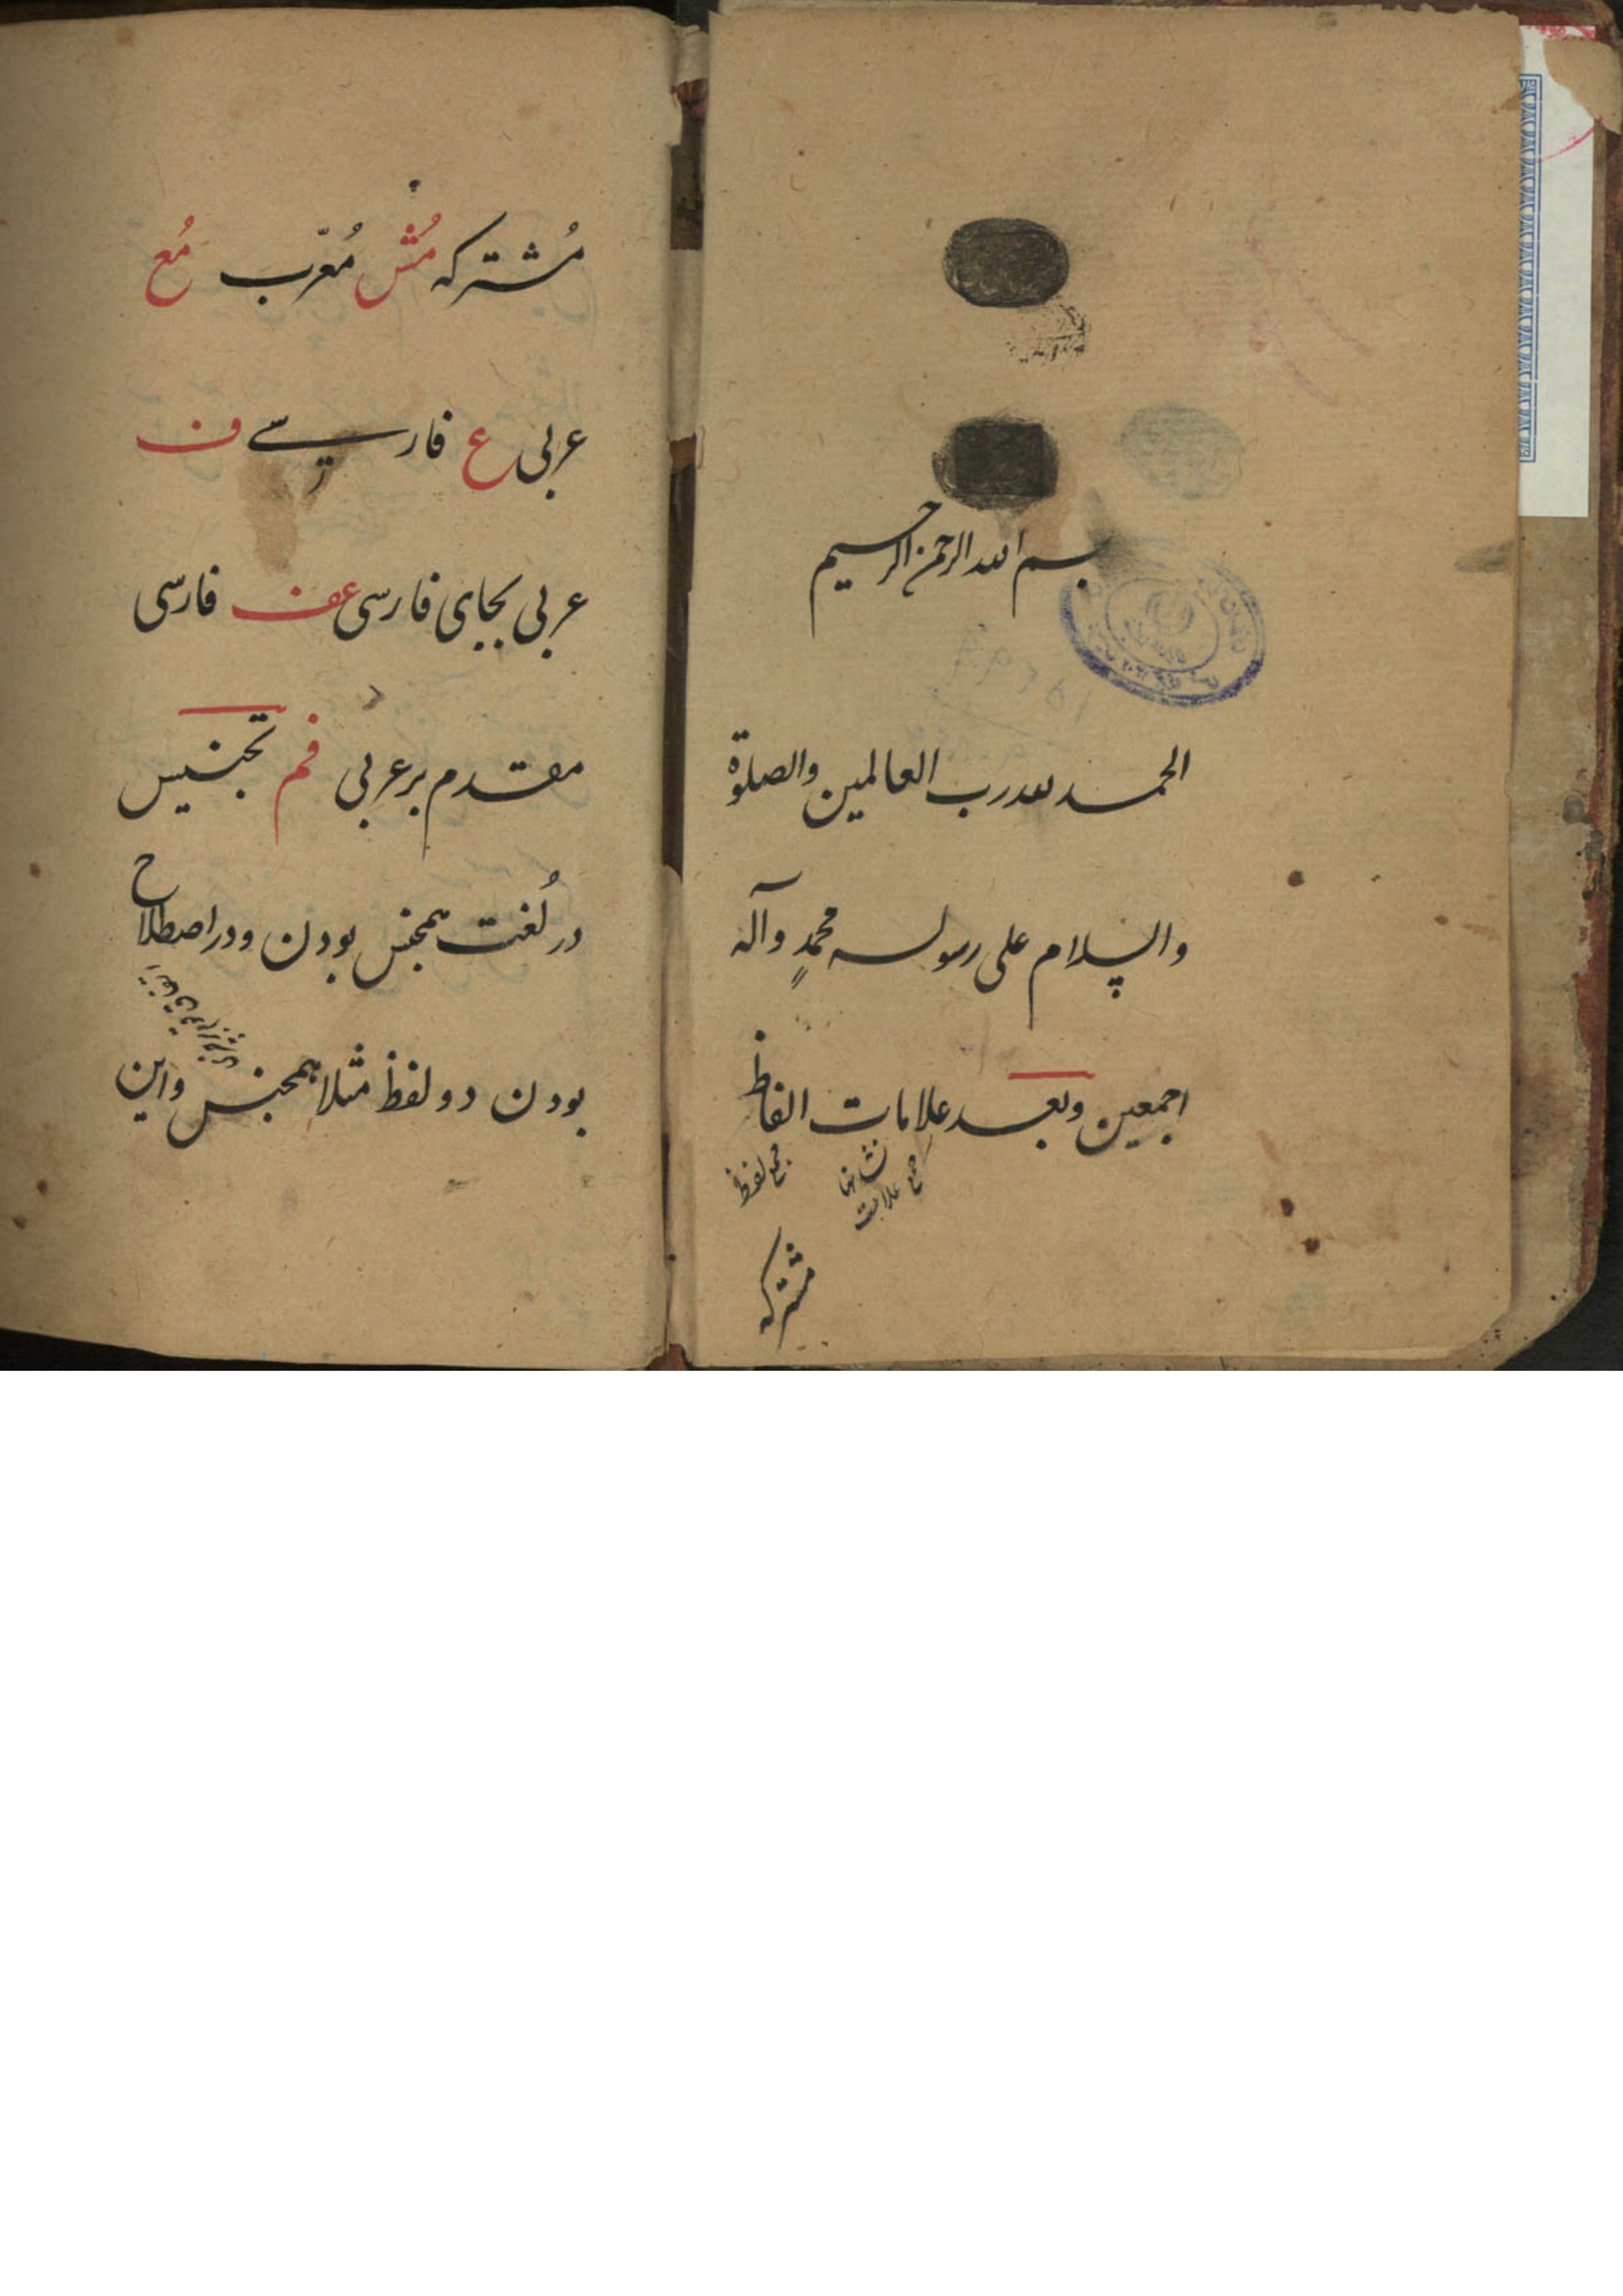 بسم الله الرحمن الرحیم
الحمد لله رب العالمین والصلوة
والسلام علی رسوله محمدٍ وآله
اجمعین وبعد علامات الفاظ
نشانها
جمع علامت
جمع لفظ
مشترکه
مُشترکه مُش مُعرّب مُع
عربی ع فارسے ف
عربی بجای فارسی عف فارسی
مقدم بر عربی فم تجنیس
در لُغت همجنس بودن ودر اصطلاح
بودن دو لفظ مثلا همجنس واین